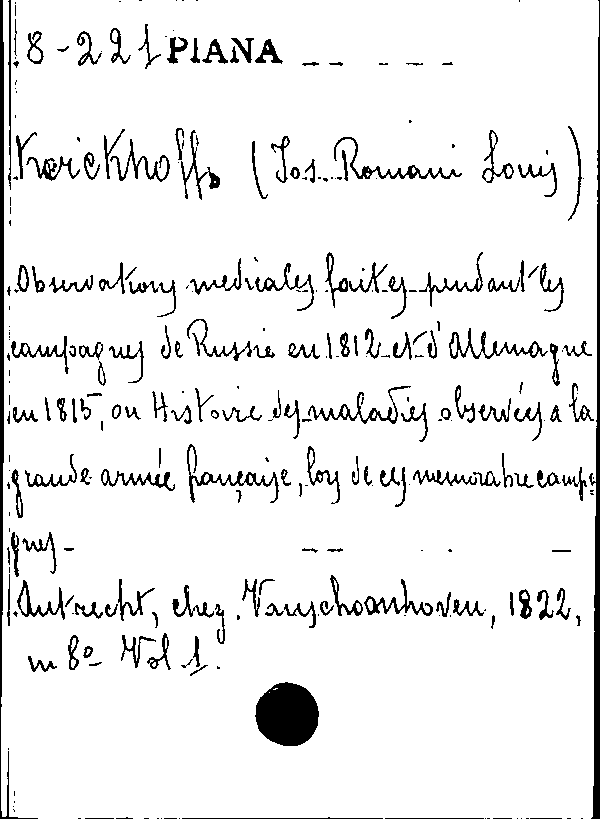 8-221 PIANA
Kerckhoffs (Jos. Romani Louis)
Observations medicales faites pendant les
campagnes de Russie en 1812 et d'Allemagne
en 1815, ou Histoire des maladies observées a la
grande armée française, lors de ces memorabre campa
gnes -
Autrecht, chez. Vanschoonhoven, 1822,
in 8º Vol 1.